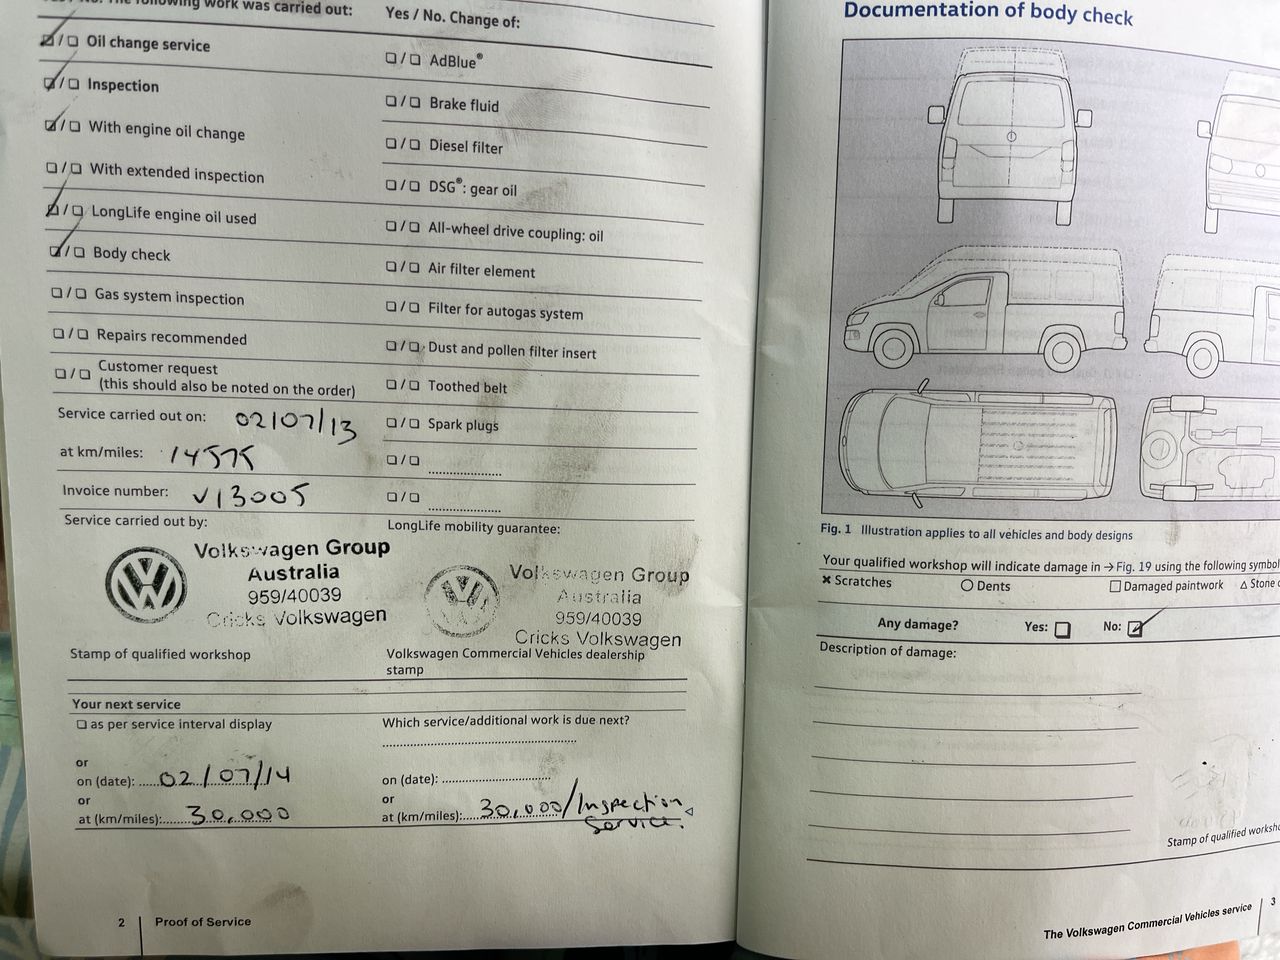 following work was carried out:
Oil change service
Inspection
With engine oil change
With extended inspection
LongLife engine oil used
Body check
Gas system inspection
Repairs recommended
Customer request
(this should also be noted on the order)
Service carried out on: 02/07/13
at km/miles: 14575
Invoice number: V13005
Service carried out by:
Volkswagen Group
Australia
959/40039
Cricks Volkswagen
Stamp of qualified workshop
Yes / No. Change of:
AdBlue®
Brake fluid
Diesel filter
DSG®: gear oil
All-wheel drive coupling: oil
Air filter element
Filter for autogas system
Dust and pollen filter insert
Toothed belt
Spark plugs
LongLife mobility guarantee:
Volkswagen Group
Australia
959/40039
Cricks Volkswagen
Volkswagen Commercial Vehicles dealership
stamp
Your next service
as per service interval display
or
on (date): 02/07/14
or
at (km/miles): 30,000
Which service/additional work is due next?
on (date):
or
at (km/miles): 30,000/Inspection
Service.
2 Proof of Service
Documentation of body check
Fig. 1 Illustration applies to all vehicles and body designs
Your qualified workshop will indicate damage in → Fig. 19 using the following
Scratches Dents Damaged paintwork Stone
Any damage? Yes: No:
Description of damage:
Stamp of qualified
The Volkswagen Commercial Vehicles service 3